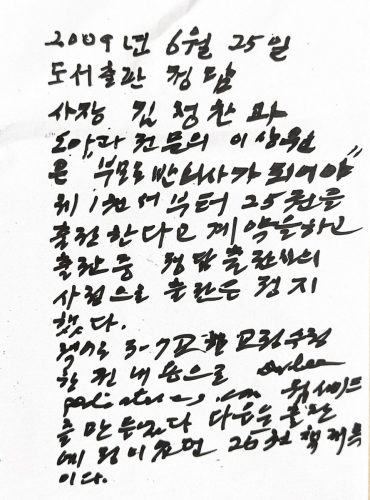 2009년 6월 25일
도서출판 정담
사장 김정찬 과
소아과 전문의 이상원
은 "부모도 반의사가 되어야"
제1권서부터 25권을
출판한다고 계약을하고
출판중 정담출판사의
사정으로 출판은 정지
했다.
책으로 3-7교 한 교정수정
한 전 내용으로
.com 웹사이트
를 만들었다 다음은 출판
예정이었던 26권 책 제목
이다.